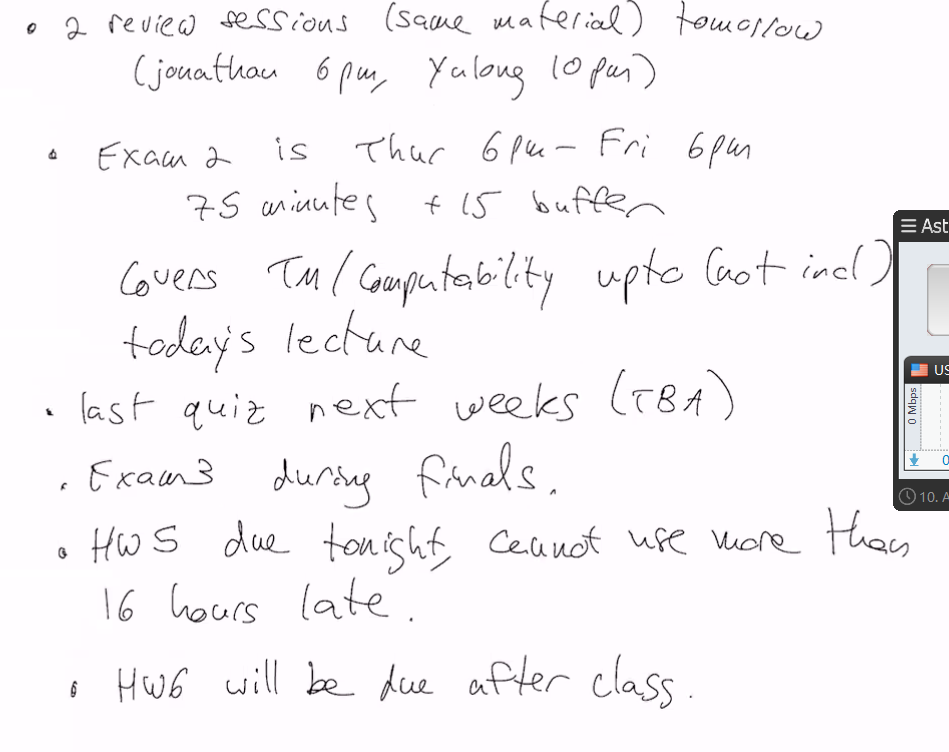 • 2 review sessions (same material) tomorrow
(jonathan 6pm, Yalong 10pm)
• Exam 2 is Thur 6pm – Fri 6pm
75 minutes + 15 buffer
Covers TM/Computability upto (not incl)
today's lecture
• last quiz next weeks (TBA)
• Exam3 during finals.
• HW5 due tonight, cannot use more than
16 hours late.
• HW6 will be due after class.
☰ Ast
US
0 Mbps
0
10. A